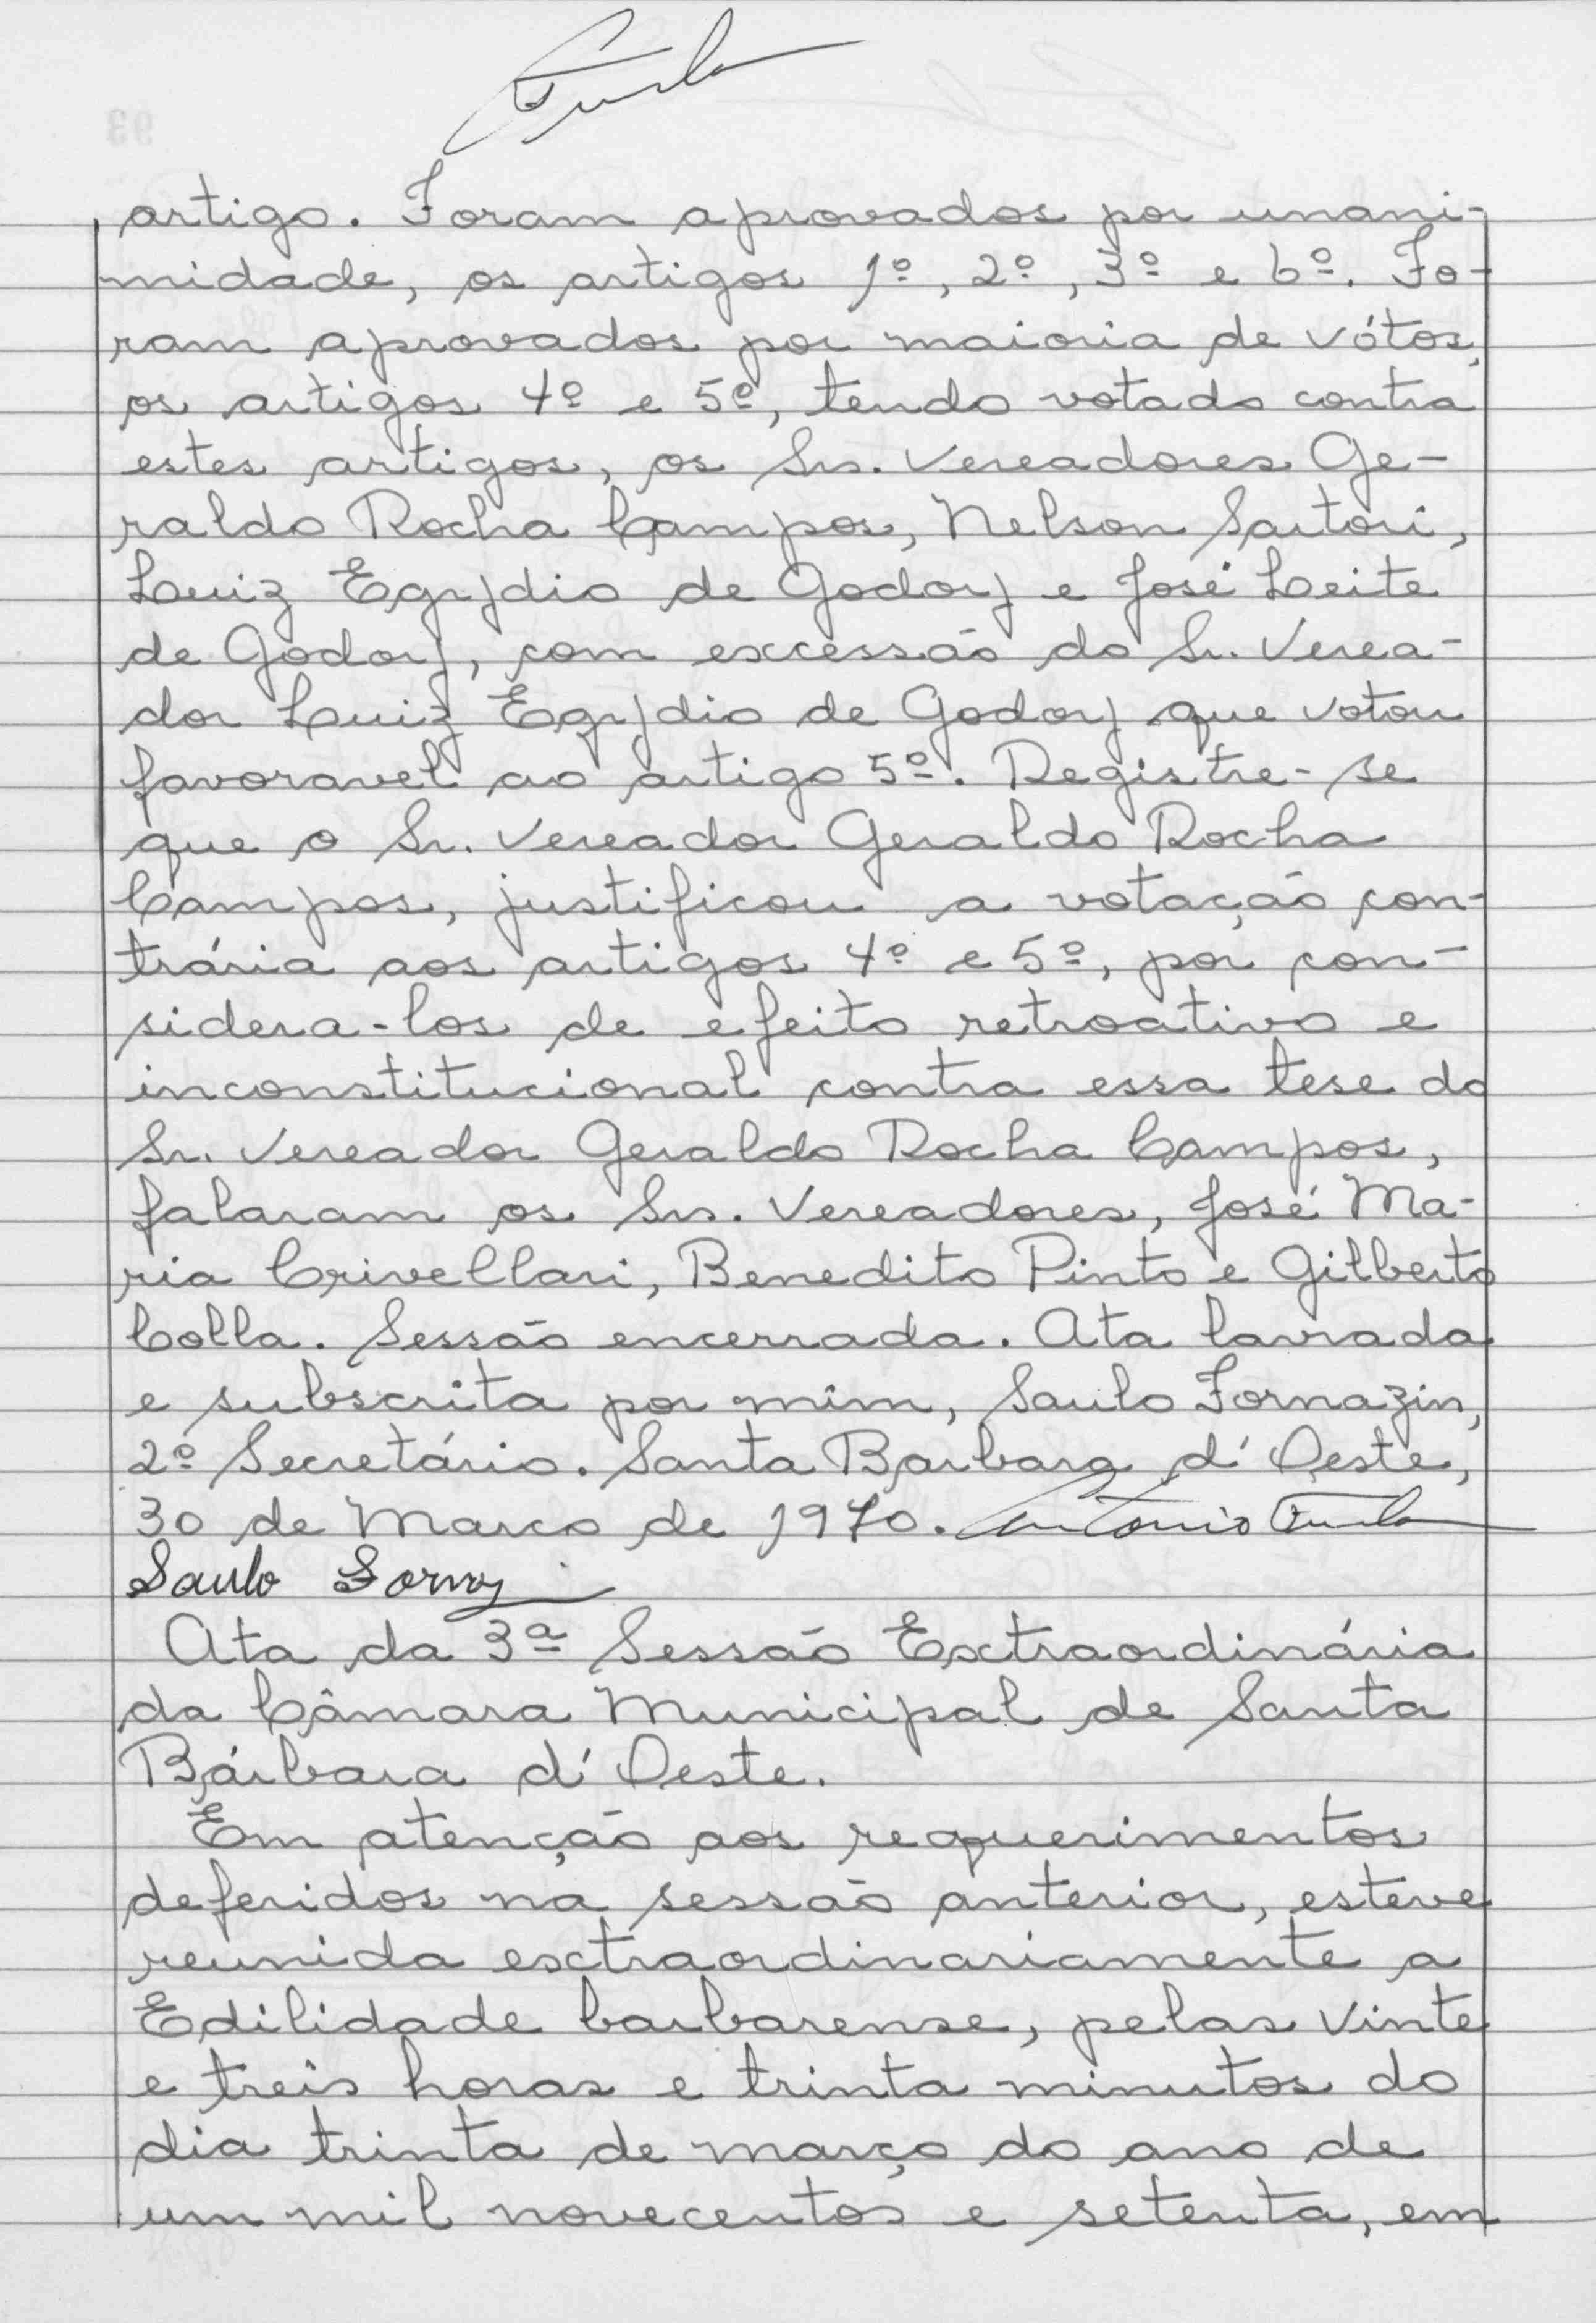 artigo. Foram aprovados por unani-
midade, os artigos 1º, 2º, 3º e 6º. Fo-
ram aprovados por maioria de vótos,
os artigos 4º e 5º, tendo votado contra
estes artigos, os Srs. Vereadores Ge-
raldo Rocha Campos, Nelson Sartori,
Luiz Egydio de Godoy e José Leite
de Godoy, com excessão do Sr. Verea-
dor Luiz Egydio de Godoy que votou
favoravel ao artigo 5º. Registre-se
que o Sr. Vereador Geraldo Rocha
Campos, justificou a votação con-
trária aos artigos 4º e 5º, por con-
sidera-los de efeito retroativo e
inconstitucional contra essa tese do
Sr. Vereador Geraldo Rocha Campos,
falaram os Srs. Vereadores, José Ma-
ria Crivellari, Benedito Pinto e Gilberto
Colla. Sessão encerrada. Ata lavrada
e subscrita por mim, Saulo Fornazin,
2º Secretário. Santa Barbara d'Oeste,
30 de Março de 1970. Antonio
Saulo
Ata da 3ª Sessão Extraordinária
da Câmara Municipal de Santa
Bárbara d'Oeste.
Em atenção aos requerimentos
deferidos na sessão anterior, esteve
reunida extraordinariamente a
Edilidade barbarense, pelas vinte
e treis horas e trinta minutos do
dia trinta de março do ano de
um mil novecentos e setenta, em